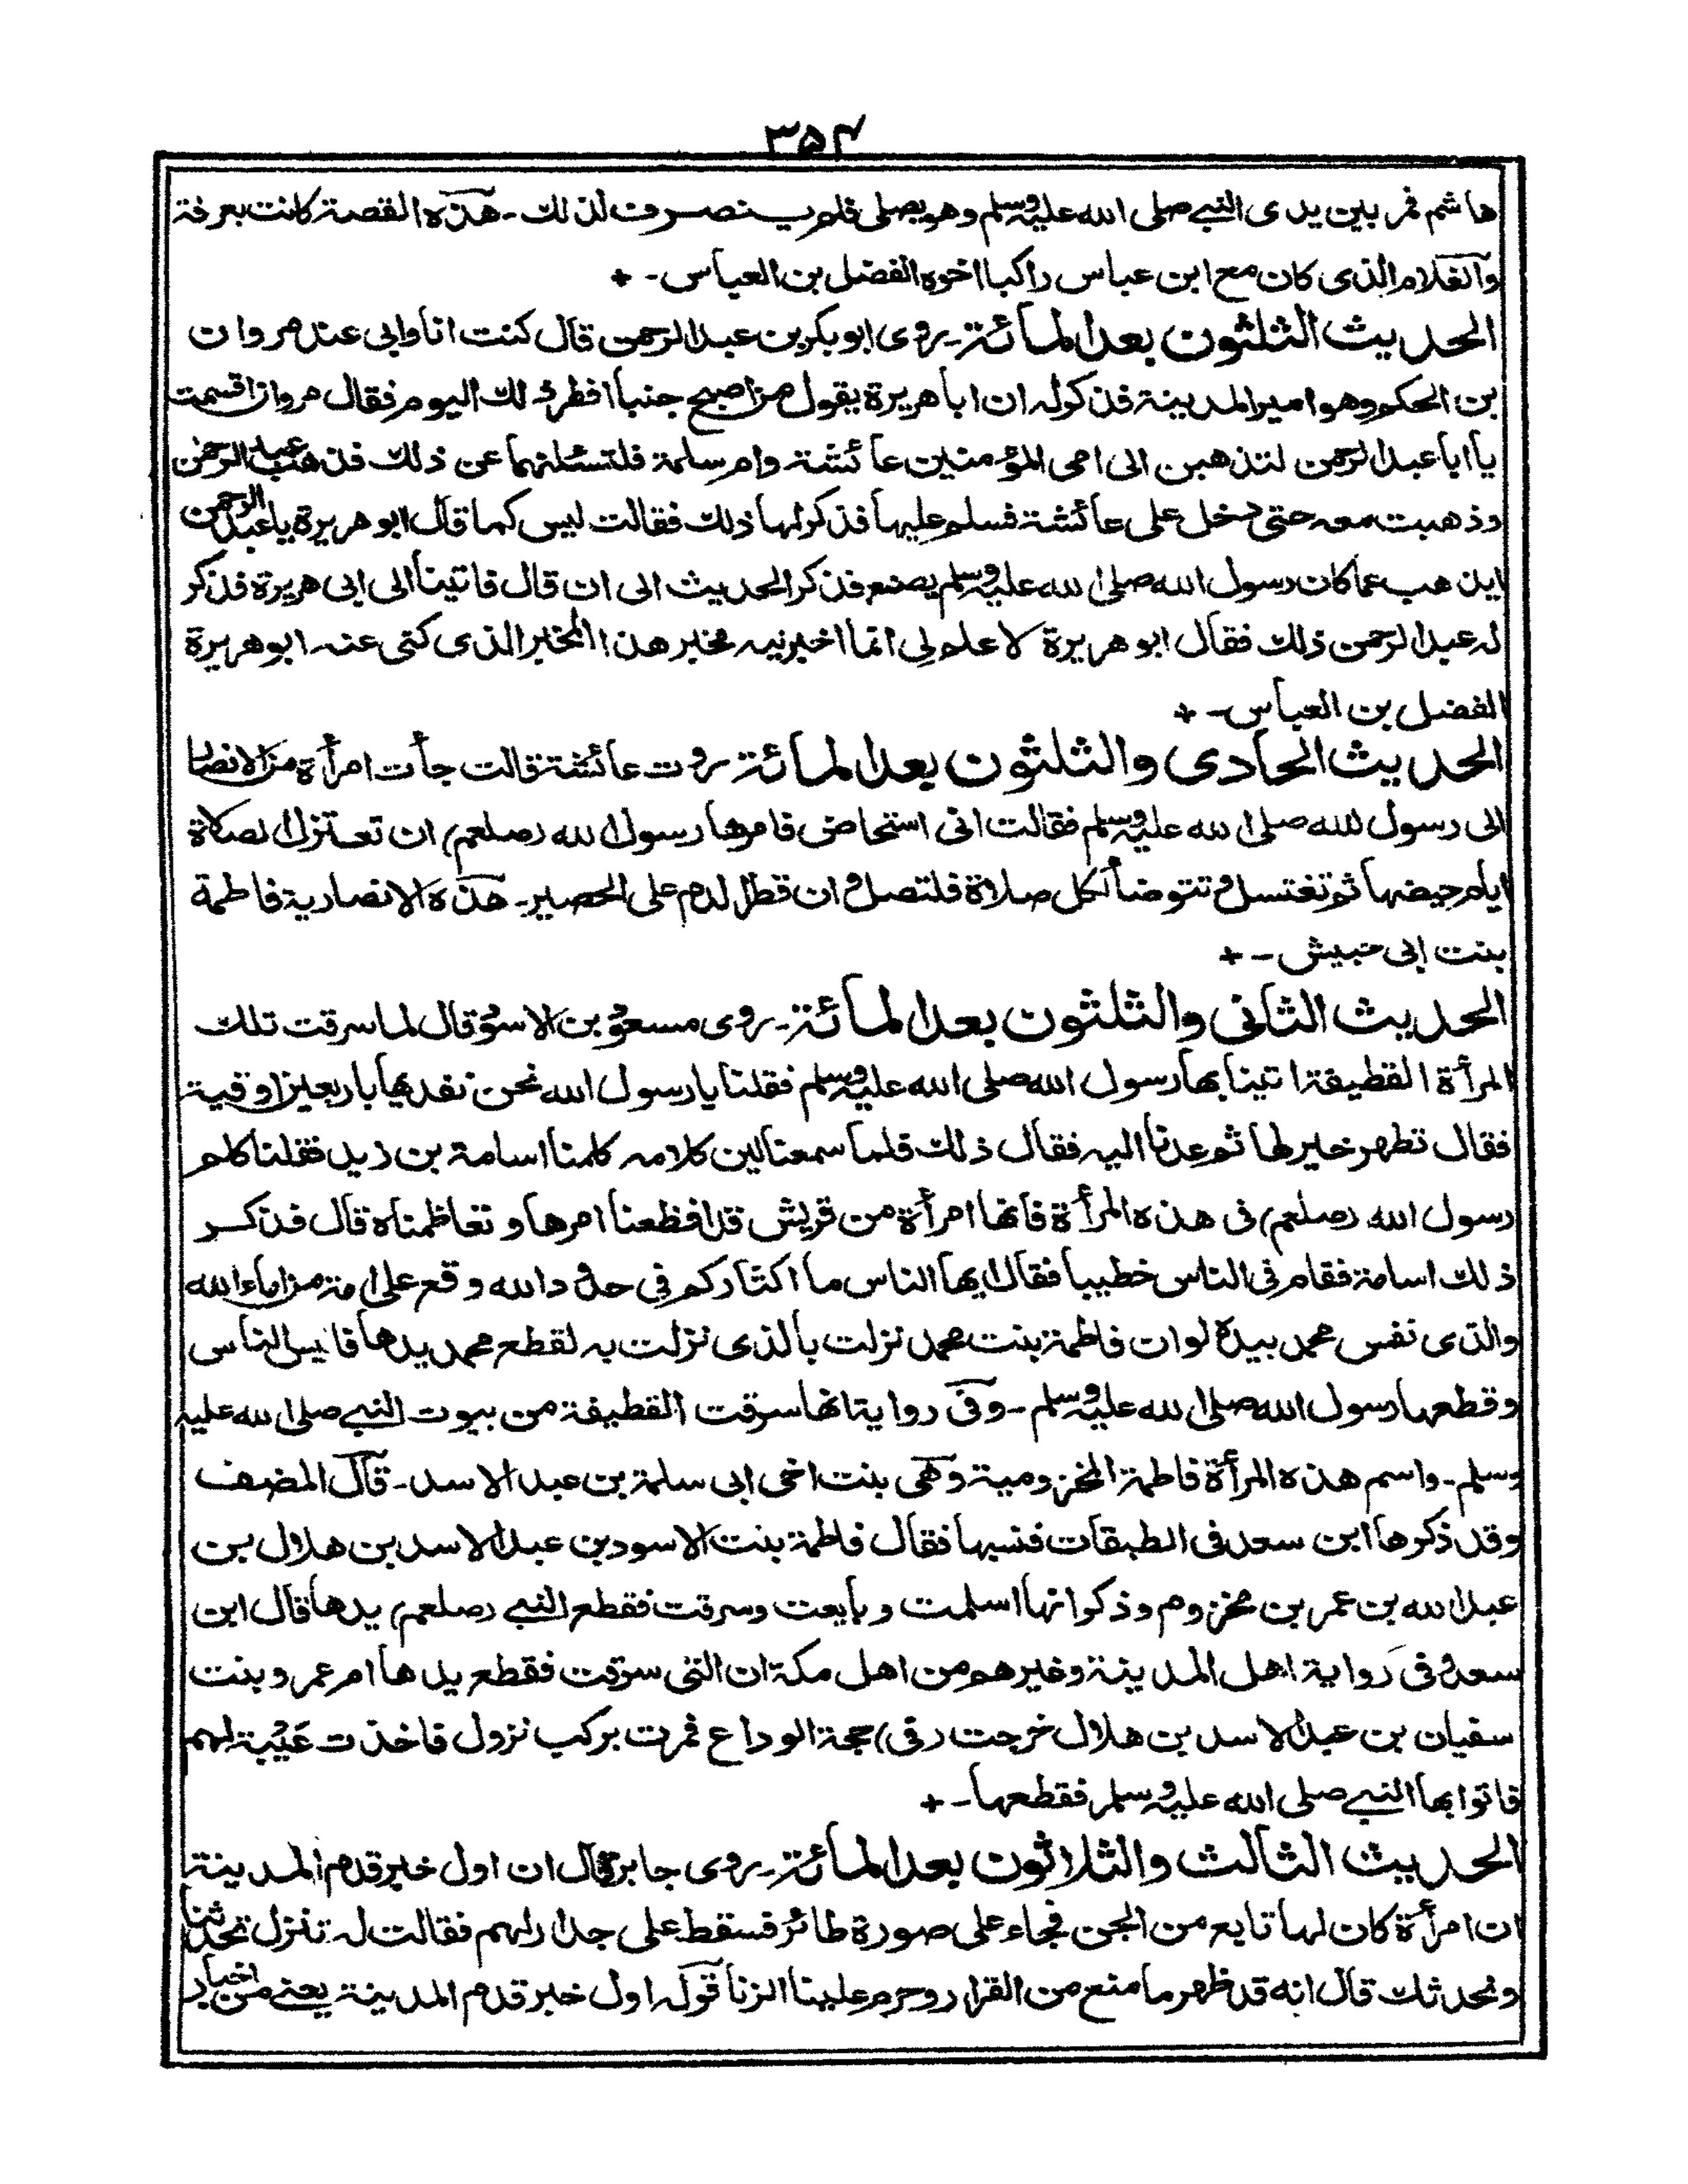 ۳۵۴
هاشم فمر بين يدى النبي صلى الله عليه وسلم وهو يصلى فلم ينصرف لذلك - هذه القصة كانت بعرفة
والغلام الذى كان مع ابن عباس راكبا اخوه الفضل بن العباس - +
الحديث الثلثون بعد المائة - روى ابو بكر بن عبد الرحمن قال كنت انا وابى عند مروان
بن الحكم وهو امير المدينة فذكر له ان ابا هريرة يقول من اصبح جنبا افطر ذلك اليوم فقال مروان اقسمت
يا ابا عبد الرحمن لتذهبن الى امى المؤمنين عائشة وام سلمة فلتسئلنهما عن ذلك فذهب عبد الرحمن
وذهبت معه حتى دخل على عائشة فسلم عليها فذكر لها ذلك فقالت ليس كما قال ابو هريرة يا عبد الرحمن
اين هب عما كان رسول الله صلى الله عليه وسلم يصنع فذكر الحديث الى ان قال فاتينا الى ابى هريرة فذكر
له عبد الرحمن ذلك فقال ابو هريرة لا علم لى انما اخبرنيه مخبر هذا المخبر الذى كنى عنه ابو هريرة
الفضل بن العباس - +
الحديث الحادى والثلثون بعد المائة - روت عائشة قالت جأت امرأة من الانصار
الى رسول الله صلى الله عليه وسلم فقالت انى استحاض فامرها رسول الله (صلعم) ان تعتزل الصلاة
ايام حيضها ثم تغتسل وتتوضأ لكل صلاة فلتصل وان قطر الدم على الحصير - هذه الانصارية فاطمة
بنت ابى حبيش - +
الحديث الثانى والثلثون بعد المائة - روى مسعود بن الاسود قال لما سرقت تلك
المرأة القطيفة اتينا بها رسول الله صلى الله عليه وسلم فقلنا يا رسول الله نحن نفديها باربعين اوقية
فقال تطهر خير لها ثم عدنا اليه فقال ذلك فلما سمعنا لين كلامه كلمنا اسامة بن زيد فقلنا كلم
رسول الله (صلعم) فى هذه المرأة فانها امرأة من قريش قد افظعنا امرها وتعاظمناه قال فذكر
ذلك اسامة فقام فى الناس خطيبا فقال ايها الناس ما اكثاركم فى حد من حدود الله وقع على امة من اماء الله
والذى نفس محمد بيده لو ان فاطمة بنت محمد نزلت بالذى نزلت به لقطع محمد يدها فايس الناس
وقطعها رسول الله صلى الله عليه وسلم - وفى رواية انها سرقت القطيفة من بيوت النبي صلى الله عليه
وسلم - واسم هذه المرأة فاطمة المخزومية وهى بنت اخى ابى سلمة بن عبد الاسد - قال المصنف
وقد ذكرها ابن سعد فى الطبقات فنسبها فقال فاطمة بنت الاسود بن عبد الاسد بن هلال بن
عبد الله بن عمر بن مخزوم وذكر انها اسلمت وبايعت وسرقت فقطع النبي (صلعم) يدها قال ابن
سعد وفى رواية اهل المدينة وغيرهم من اهل مكة ان التى سرقت فقطع يدها ام عمرو بنت
سفيان بن عبد الاسد بن هلال خرجت (فى) حجة الوداع فمرت بركب نزول فاخذت عَيْبة لهم
فاتوا بها النبي صلى الله عليه وسلم فقطعها - +
الحديث الثالث والثلاثون بعد المائة - روى جابر قال ان اول خبر قدم المدينة
ان امرأة كان لها تابع من الجن فجاء على صورة طائر فسقط على جدار لهم فقالت له تنزل تحدثنا
ونحدثك قال انه قد ظهر ما منع من القرار وحرم علينا الزنا قوله اول خبر قدم المدينة يعنے من اخبار